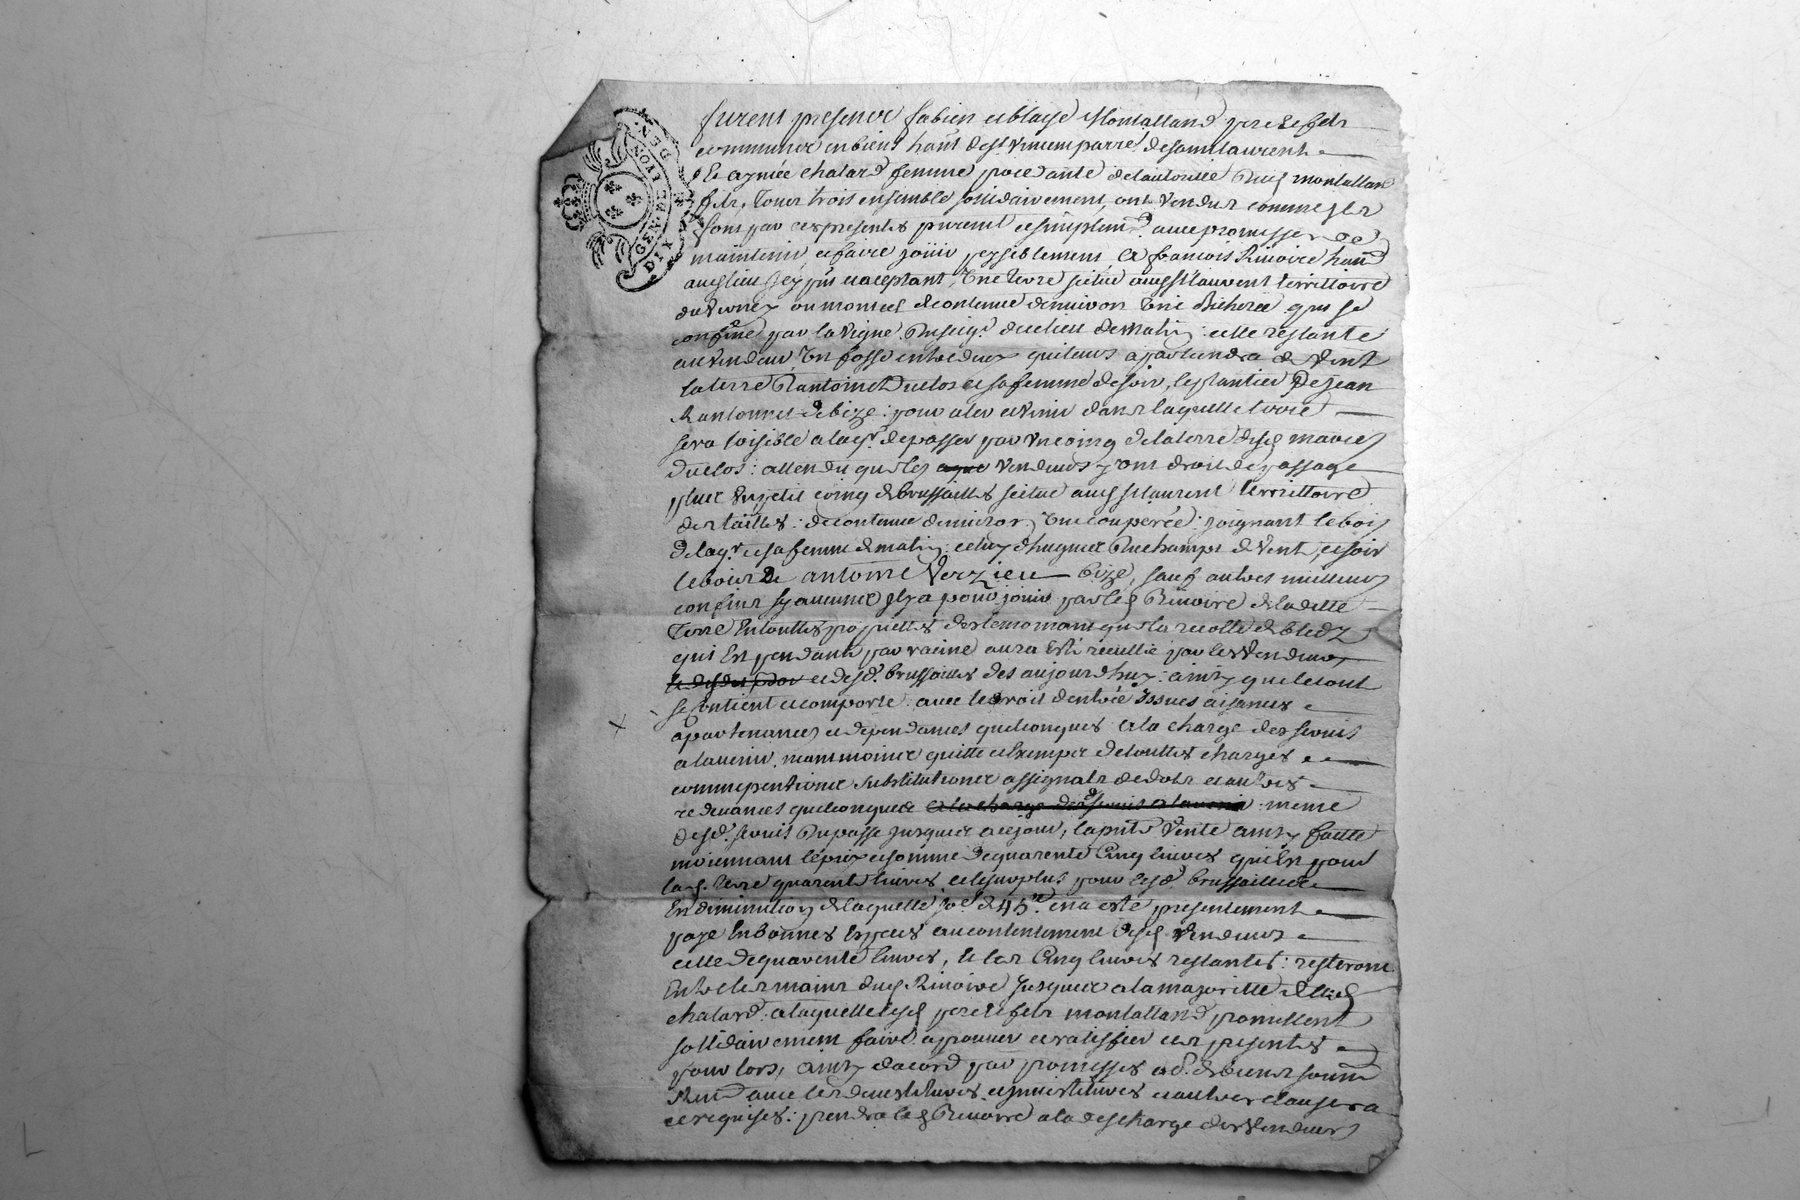 GEN. DE. LYON.
DIX DEN.
furent presence fabien et blaise Montalland pere et fils
communier en biens hant de st vincent parre de saint laurent
& et aymée chalard femme procedante de lautorité dud montalland
fils, Touts trois ensemble solidairement, ont vendus comme ils
font par ces presentes purement et simplemt. avec promesse de
maintenir et faire jouir paysiblement A francois Rivoire hant
aud lieu icy pnt et acceptant, Une terre scitué aud st laurent territoire
du verney ou montcel & contenue denviron une Bicherée qui se
confine par la vigne dud sieur duclieu de matin : celle restante
au vendeur Un fossé entre deux qui leurs apartiendra de Vent
la terre d'antoine Duclos et sa femme de soir, le plantier de jean
Rantonnet de bize : pour aler et venir dans laquelle terre
sera loisible a laqr. de passer par un coing de la terre desd mariés
duclos : attendu que les vendeurs y ont droit de passage
plus Un petit coing de brussailles scitué aud st laurent territoire
des tailles : de contenue denviron une couperée : joignant le bois
de laqr. et sa femme de matin : celuy d'hugues Duchamps de vent, et soir
le bois de antoine Verzieu bize, sauf autres meilleurs
confins sy aucunes il y a pour jouir par led Rivoire de ladite
terre En touttes propriettés des le momant que la recolte de bledz
qui Est pendante par racine aura Esté recueillie par les vendeurs
et desd. brussailles des aujourdhuy : ainsy que le tout
se contient et comporte : avec le droit dentrée issues aisances
apartenances et dependances quelconques : a la charge des servis
a lavenir, neanmoins quitte et Exempte de touttes charges
comme pentions substitutions assignats de dots et autres
redevances quelconques a la charge des servis a lavenir même
desd. servis du passé jusques a ce jour, la pnte Vente ainsy faitte
moiennant le prix et somme de quarente Cinq livres qui Est pour
lad. terre quarente livres et le surplus pour lesd. brussailles
En diminution de laquelle so.e de 45 ll. en a esté presentement
payé En bonnes Espèces au contentement desd Vendeurs
celle de quarente livres, et les Cinq livres restantes : resteront
Entre les mains dud Rivoire jusques a la majorité de lad
chalard : a laquelle lesd pere et fils montalland promettent
sollidairement faire aprouver et ratiffier ces presentes
pour lors, ainsy dacord par promesses
avec les et autres clauses a
ce requises : prendra led Rivoire a la descharge des Vendeurs